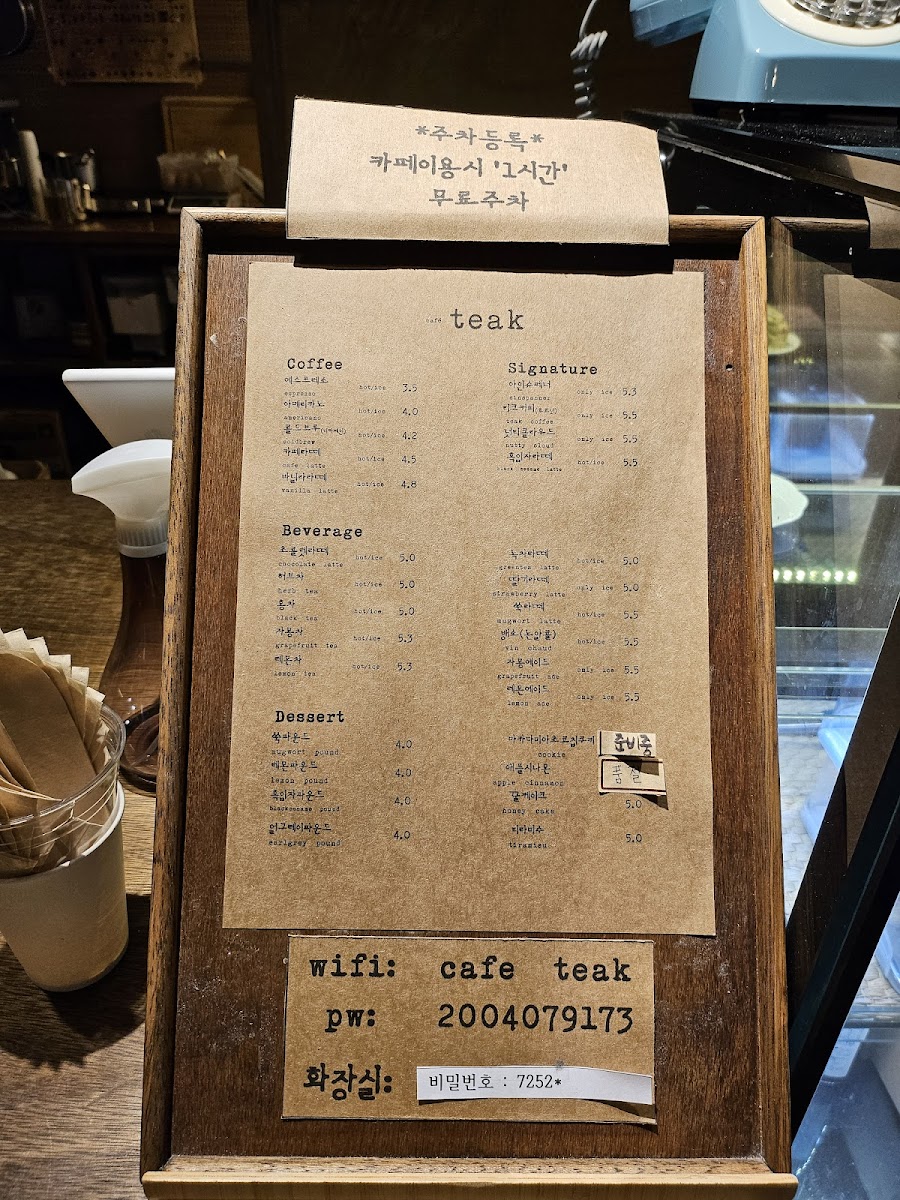 *주차등록*
카페이용시 '1시간'
무료주차
café teak
Coffee
에스프레소 hot/ice 3.5
espresso
아메리카노 hot/ice 4.0
americano
콜드브루 hot/ice 4.2
coldbrew
카페라떼 hot/ice 4.5
cafe latte
바닐라라떼 hot/ice 4.8
vanilla latte
Signature
아인슈페너 only ice 5.3
einspanner
티크커피 only ice 5.5
teak coffee
넛티클라우드 only ice 5.5
nutty cloud
흑임자라떼 hot/ice 5.5
black sesame latte
Beverage
초콜렛라떼 hot/ice 5.0
chocolate latte
허브차 hot/ice 5.0
herb tea
홍차 hot/ice 5.0
black tea
자몽차 hot/ice 5.3
grapefruit tea
레몬차 hot/ice 5.3
lemon tea
녹차라떼 hot/ice 5.0
greentea latte
딸기라떼 only ice 5.0
strawberry latte
쑥라떼 hot/ice 5.5
mugwort latte
뱅쇼(논알콜) hot/ice 5.5
vin chaud
자몽에이드 only ice 5.5
grapefruit ade
레몬에이드 only ice 5.5
lemon ade
Dessert
쑥파운드 4.0
mugwort pound
레몬파운드 4.0
lemon pound
흑임자파운드 4.0
blacksesame pound
얼그레이파운드 4.0
earlgrey pound
마카다미아초코칩쿠키 준비중
cookie
애플시나몬 품절
apple cinnamon
꿀케이크 5.0
honey cake
티라미수 5.0
tiramisu
wifi: cafe teak
pw: 2004079173
화장실: 비밀번호 : 7252*